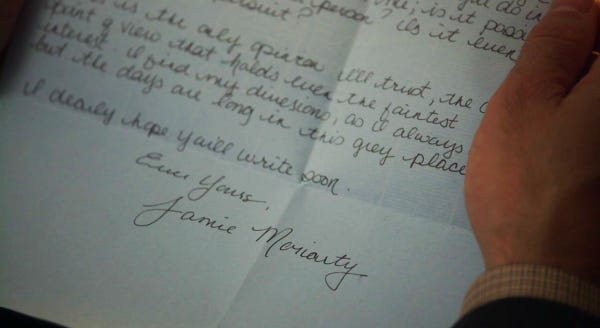 you do in
like; is it possi
pursuit? person? Is it even
is the only opinion I'll trust, the
point of view that holds even the faintest
interest. I find my diversions, as I always
but the days are long in this grey place
I dearly hope you'll write soon.
Ever Yours,
Jamie Moriarty